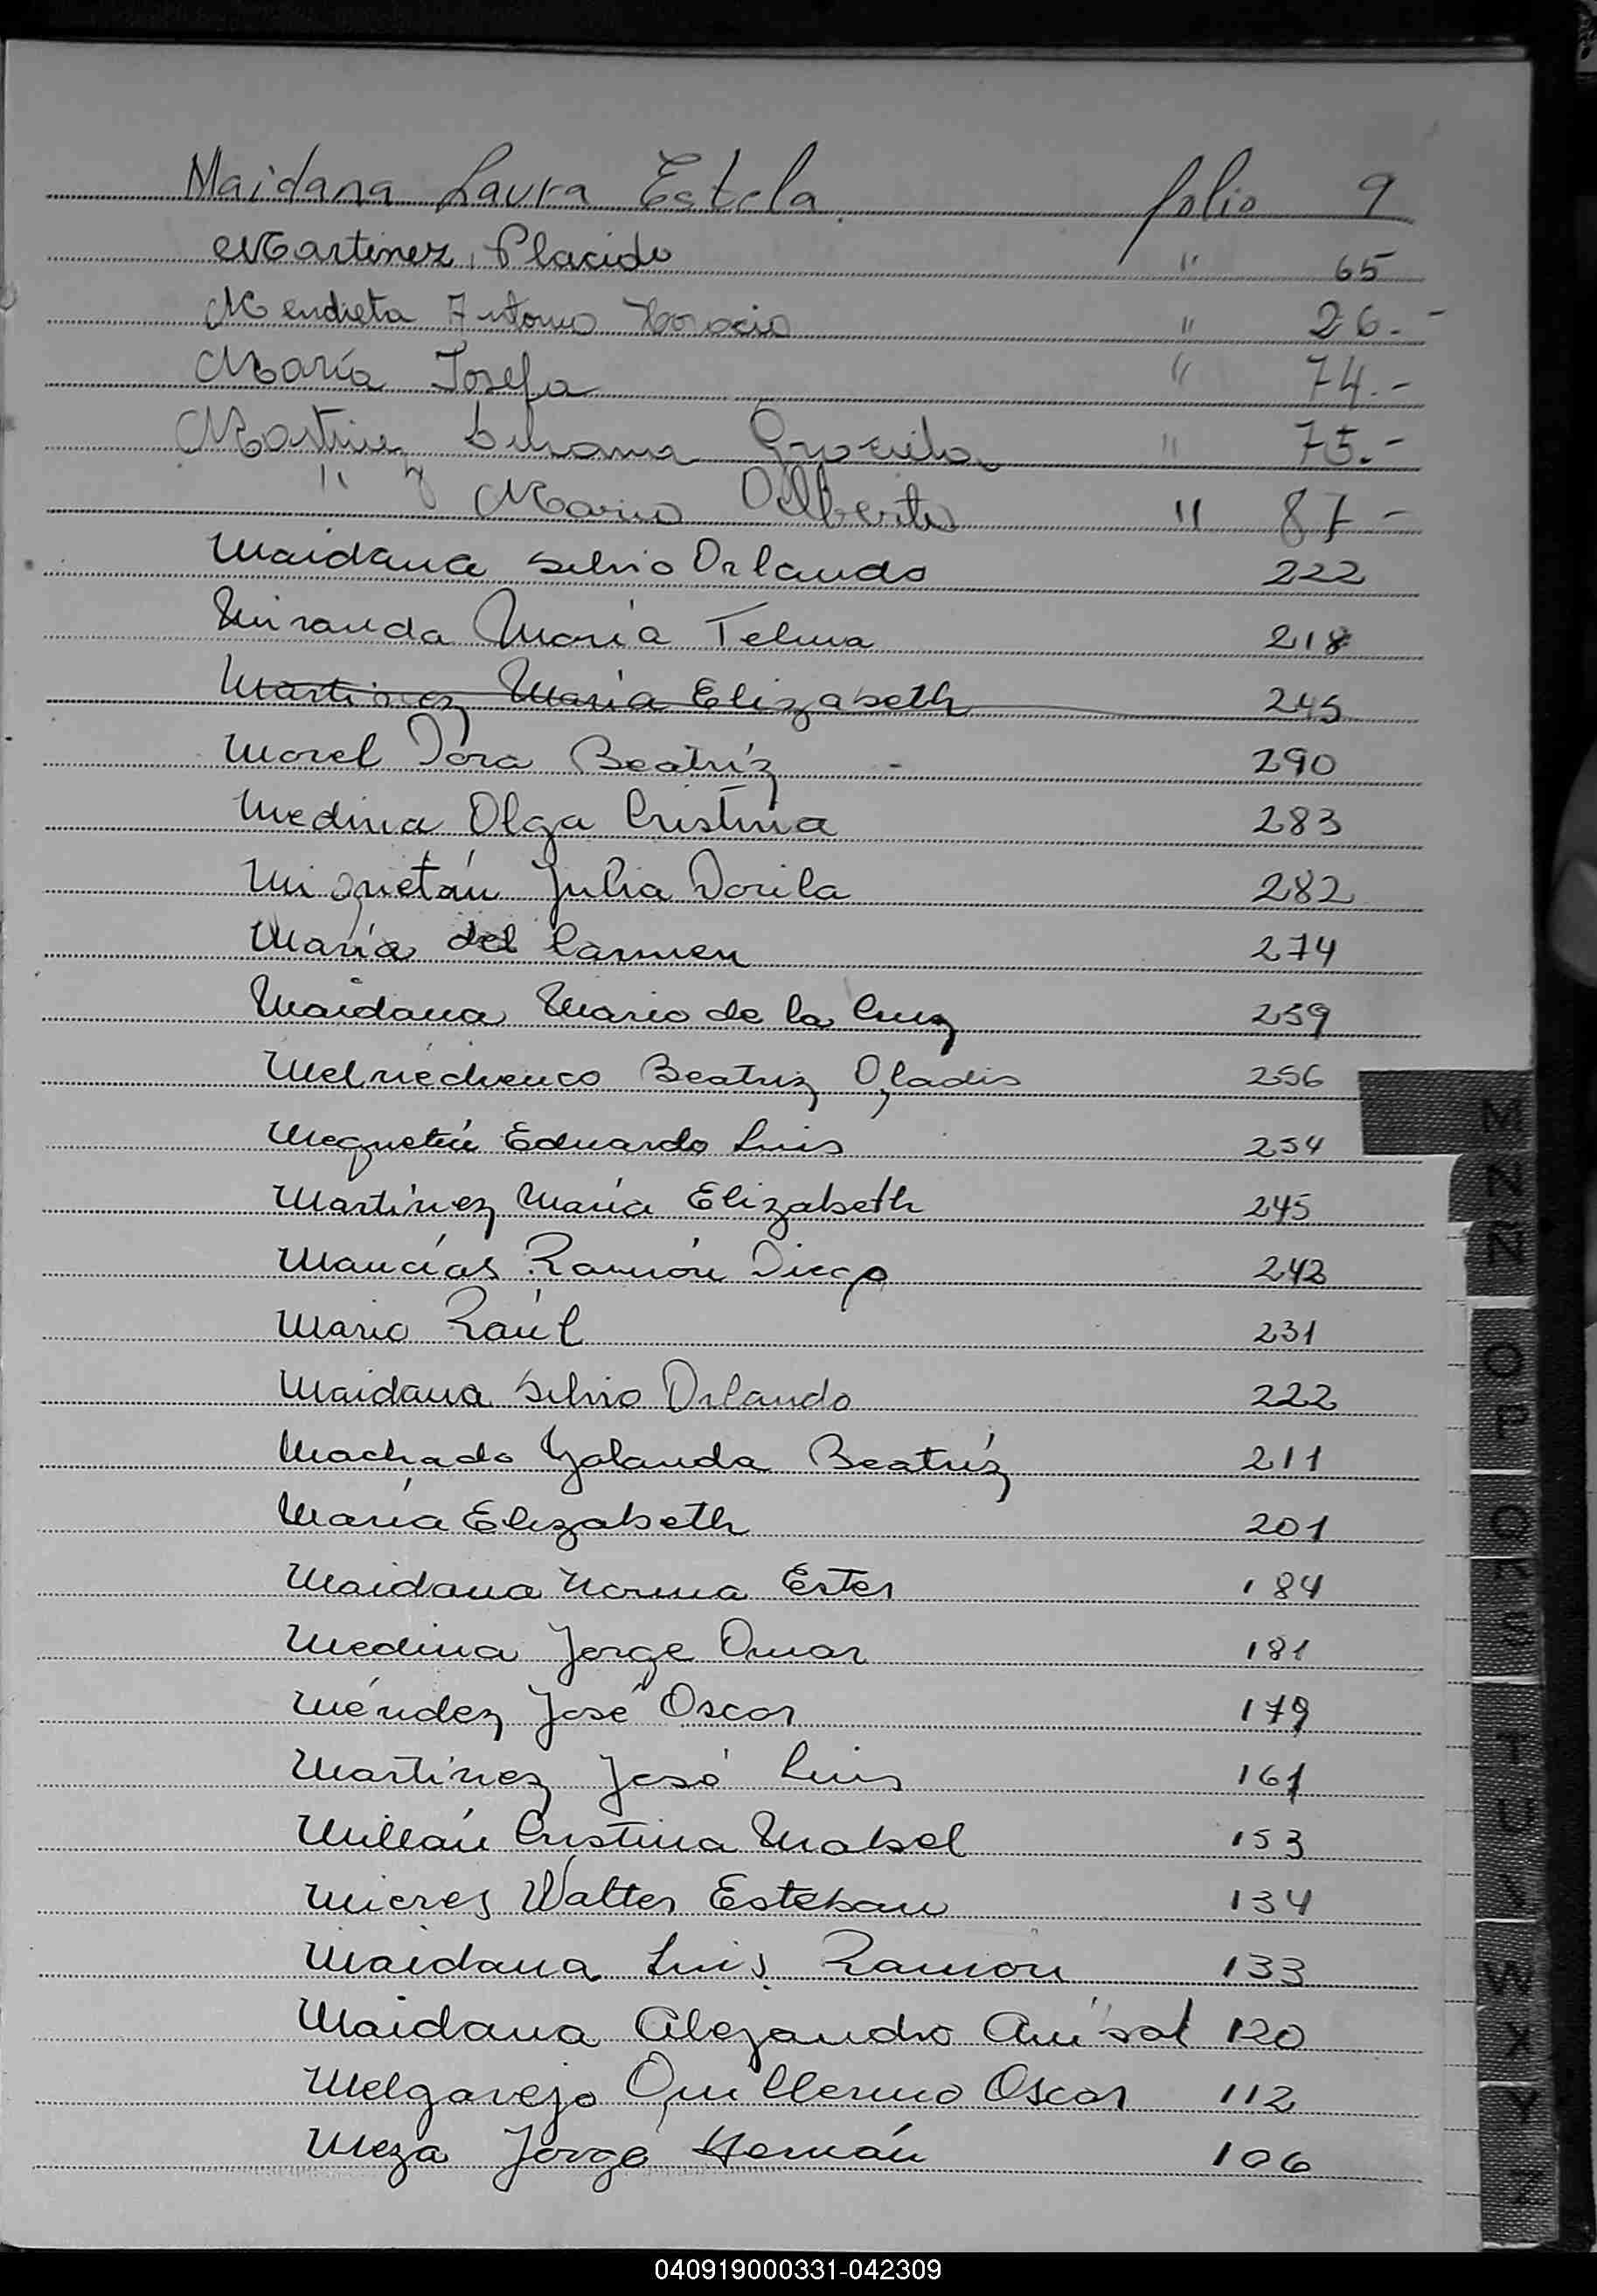 Maidana Laura Estela folio 9
Martinez, Placido " 65
Mendieta Antonio Horacio " 26.-
María Josefa " 74.-
Martinez Silvana Graciela " 75.-
" Mario Alberto " 87-
Maidana Silvio Orlando 222
Miranda María Telma 218
Martinez María Elizabeth 245
Morel Dora Beatríz 290
Medina Olga Cristina 283
Miguetán Julia Dorila 282
María del Carmen 274
Maidana Mario de la Cruz 259
Beatriz Gladis 256
Eduardo Luis 254
Martínez María Elizabeth 245
Mancías Ramón Diego 243
Mario Raúl 231
Maidana Silvio Orlando 222
Machado Yolanda Beatríz 211
María Elizabeth 201
Maidana Norma Ester 184
Medina Jorge Omar 181
Méndez José Oscar 179
Martínez José Luis 161
Millán Cristina Mabel 153
Mieres Walter Esteban 134
Maidana Luis Ramón 133
Maidana Alejandro 120
Melgarejo Guillermo Oscar 112
Meza Jorge Hernán 106
M
N
Ñ
O
P
Q
R
S
T
U
V
W
X
Y
Z
040919000331-042309